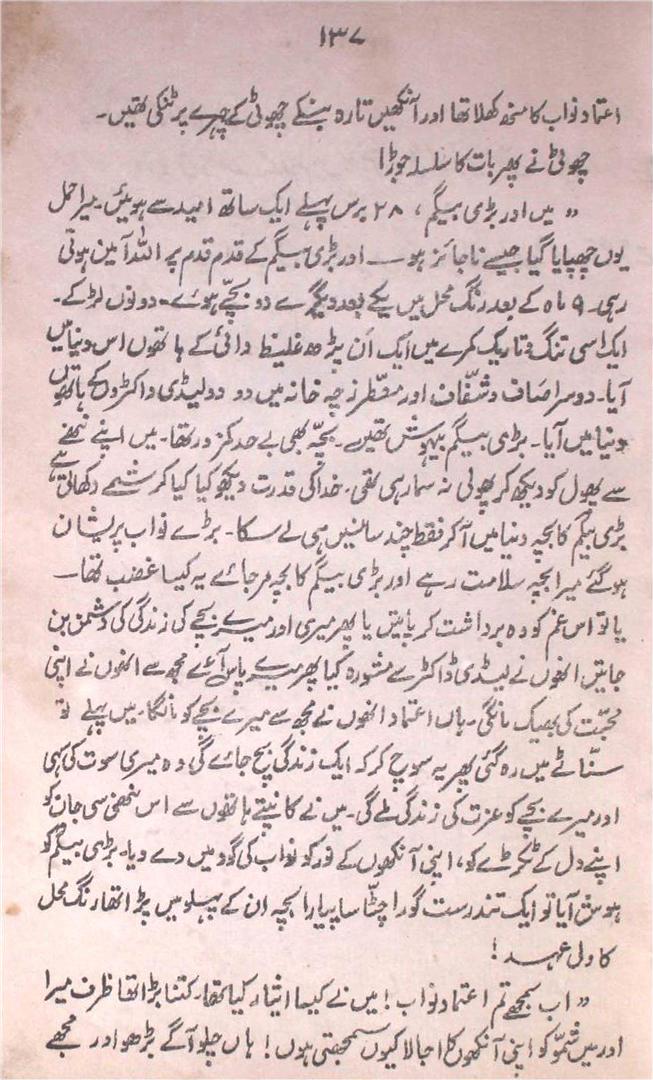 ۱۳۷
اعتماد نواب کا منھ کھلا تھا اور آنکھیں تارہ بنکے چھوٹی کے چہرے پر ٹنکی تھیں۔
چھوٹی نے پھر بات کا سلسلہ جوڑا
” میں اور بڑی بیگم ، ۲۸ برس پہلے ایک ساتھ امید سے ہوئیں۔ میرا حمل
یوں چھپایا گیا جیسے ناجائز ہو — اور بڑی بیگم کے قدم قدم پر اللہ آمین ہوتی
رہی۔ ۹ ماہ کے بعد رنگ محل میں یکے بعد دیگرے دو بچّے ہوئے۔ دونوں لڑکے۔
ایک اسی تنگ و تاریک کمرے میں ایک اَن پڑھ غلیظ دائی کے ہاتھوں اس دنیا میں
آیا۔ دوسرا صاف و شفّاف اور معطّر زچہ خانہ میں دو دو لیڈی ڈاکٹروں کے ہاتھوں
دنیا میں آیا۔ بڑی بیگم بیہوش تھیں۔ بچّہ بھی بے حد کمزور تھا۔ میں اپنے ننھے
سے پھول کو دیکھ کر پھولی نہ سما رہی تھی۔ خدا کی قدرت دیکھو کیا کیا کرشمے دکھاتی ہے
بڑی بیگم کا بچہ دنیا میں آکر فقط چند سانسیں ہی لے سکا۔ بڑے نواب پریشان
ہو گئے میرا بچہ سلامت رہے اور بڑی بیگم کا بچہ مر جائے یہ کیسا غضب تھا —
یا تو اس غم کو وہ برداشت کر پائیں یا پھر میری اور میرے بچے کی زندگی کی دشمن بن
جائیں انھوں نے لیڈی ڈاکٹر سے مشورہ کیا پھر میرے پاس آئے مجھ سے انھوں نے اپنی
محبّت کی بھیک مانگی۔ ہاں اعتماد انھوں نے مجھ سے میرے بچے کو مانگا۔ میں پہلے تو
سنّاٹے میں رہ گئی پھر یہ سوچ کر کہ ایک زندگی بچ جائے گی وہ میری سوت کی سہی
اور میرے بچے کو عزت کی زندگی ملے گی۔ میں نے کانپتے ہاتھوں سے اس ننھی سی جان کو
اپنے دل کے ٹکڑے کو، اپنی آنکھوں کے نور کو نواب کی گود میں دے دیا۔ بڑی بیگم کو
ہوش آیا تو ایک تندرست گورا چٹّا سا پیارا بچہ ان کے پہلو میں پڑا تھا رنگ محل
کا ولی عہد !
” اب سمجھے تم اعتماد نواب ! میں نے کیسا ایثار کیا تھا۔ کتنا بڑا تھا ظرف میرا
اور میں شمّو کو اپنی آنکھوں کا اجالا کیوں سمجھتی ہوں ! ہاں چلو آگے بڑھو اور مجھے